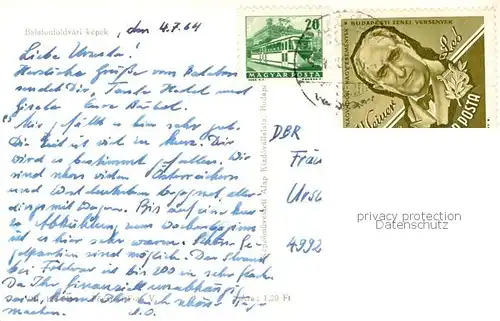 Balatonföldvári képek, den 4.7.64
Liebe Ursula!
Herzliche Grüße vom Balaton
sendet Dir, Tante Hedel und
Gisela
Mir gefällt es hier sehr gut.
Die Zeit ist viel zu kurz. Dir
würde es bestimmt gefallen. Wir
sind schon vielen Österreichern
und Westdeutschen begegnet, aller
dings mit Wagen. Bis auf eine kurze
Abkühlung vom
ist es hier sehr warm. Schöne Se
gelpartien sind möglich. Der Strand
bei Földvar ist bis 200 m sehr flach.
Da Ihr finanziell unabhängig
seid, könnt Ihr Euch schöne Tage
machen.
20
MAGYAR POSTA
BUDAPESTI ZENEI VERSENYEK
Weiner Leó
POSTA
Képzőművészeti Alap Kiadóvállalata, Budapest
DBR
Frau
Ursu
4992
privacy protection
Datenschutz
Ára: 1,20 Ft